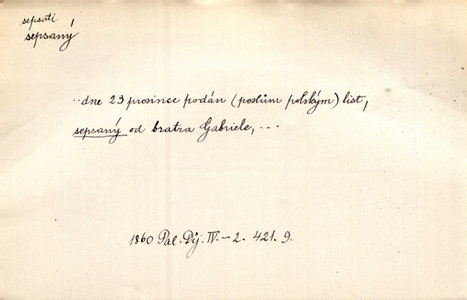 sepsati
sepsaný
... dne 23 prosince podán (poslům polským) list,
sepsaný od bratra Gabriele, ...
1860 Pal. Děj. IV. - 2. 421. 9.